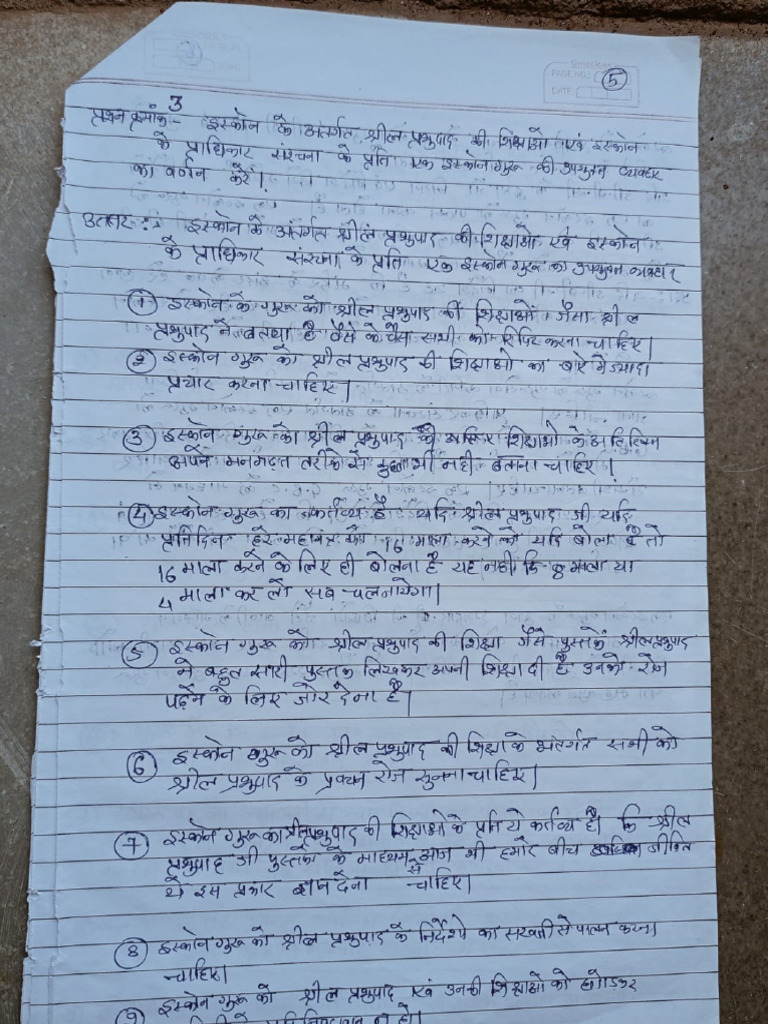 5
PAGE NO.:
DATE:
3
प्रश्न क्रमांक - इस्कॉन के अंतर्गत श्रील प्रभुपाद की शिक्षाओं एवं इस्कॉन
के प्राधिकार संरचना के प्रति एक इस्कॉन गुरु की उपयुक्त व्यवहार
का वर्णन करें।
उत्तर :- इस्कॉन के अंतर्गत श्रील प्रभुपाद की शिक्षाओं एवं इस्कॉन
के प्राधिकार संरचना के प्रति एक इस्कॉन गुरु का उपयुक्त व्यवहार
① इस्कॉन के गुरु को श्रील प्रभुपाद की शिक्षाओं जैसा श्रील
प्रभुपाद ने बताया है वैसे के वैसा सभी को रिपिट करना चाहिए।
② इस्कॉन गुरु को श्रील प्रभुपाद की शिक्षाओं का बारे में ज्यादा
प्रचार करना चाहिए।
③ इस्कॉन गुरु को श्रील प्रभुपाद की शिक्षाओं के अतिरिक्त
अपने मनगढ़त तरीके से कुछ भी नही बोलना चाहिए।
④ इस्कॉन गुरु का कर्तव्य है यदि श्रील प्रभुपाद जी यदि
प्रतिदिन हरे महामंत्र की 16 माला करने को यदि बोला है तो
16 माला करने के लिए ही बोलना है यह नही कि 8 माला या
4 माला कर लो सब चलजायेगा।
⑤ इस्कॉन गुरु को श्रील प्रभुपाद की शिक्षा जैसे पुस्तकें श्रील प्रभुपाद
ने बहुत सारी पुस्तक लिखकर अपनी शिक्षा दी है उनको रोज
पढ़ने के लिए जोर देना है।
⑥ इस्कॉन गुरु को श्रील प्रभुपाद की शिक्षा के अंतर्गत सभी को
श्रील प्रभुपाद के प्रवचन रोज सुनना चाहिए।
⑦ इस्कॉन गुरु का श्रील प्रभुपाद की शिक्षाओं के प्रति ये कर्तव्य है। कि श्रील
प्रभुपाद जी पुस्तकों के माध्यम से आज भी हमारे बीच जीवित
थे इस प्रकार ज्ञान देना चाहिए।
⑧ इस्कॉन गुरु को श्रील प्रभुपाद के निर्देशो का सख्ती से पालन करना
चाहिए।
⑨ इस्कॉन गुरु को श्रील प्रभुपाद एवं उनकी शिक्षाओं को